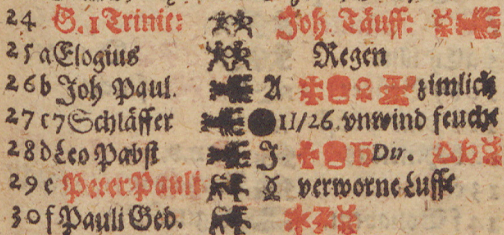 24 G. 1 Trinit: Joh. Täuff:
25 a Elogius Regen
26 b Joh Paul. A zimlich
27 c 7 Schläffer 11/26. vnwind feucht
28 d Leo Pabst J. ♄ Dir. △ ♄ ☿
29 e Peter Pauli ☿ verworne Lufft
30 f Pauli Ged.